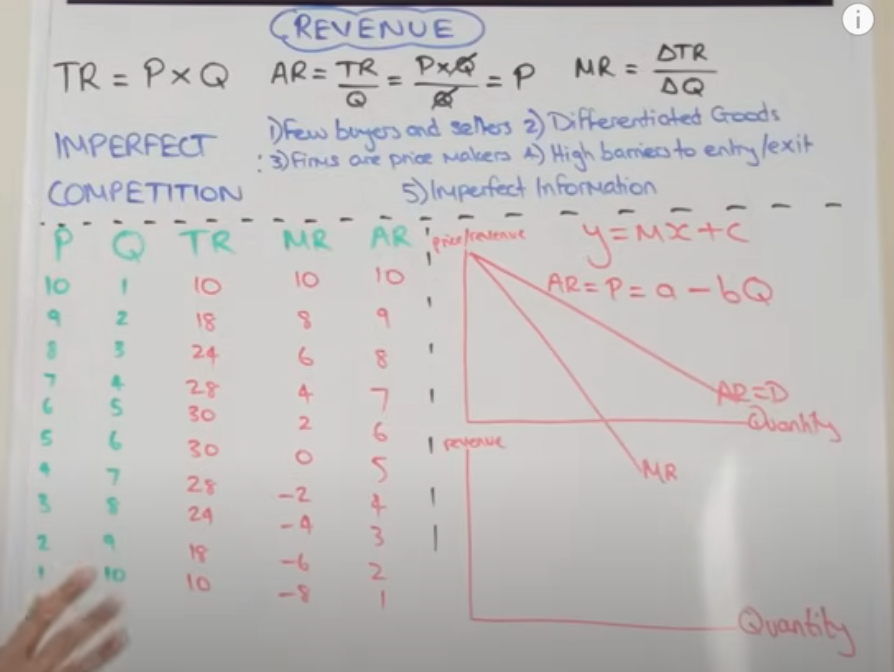 REVENUE
TR = P x Q
AR = TR/Q = PxQ/Q = P
MR = ΔTR/ΔQ
IMPERFECT COMPETITION
: 1) Few buyers and sellers 2) Differentiated Goods
3) Firms are price makers 4) High barriers to entry/exit
5) Imperfect Information
P Q TR MR AR
10 1 10 10 10
9 2 18 8 9
8 3 24 6 8
7 4 28 4 7
6 5 30 2 6
5 6 30 0 5
4 7 28 -2 4
3 8 24 -4 3
2 9 18 -6 2
1 10 10 -8 1
price/revenue
y=Mx+c
AR = P = a - bQ
AR=D
Quantity
MR
revenue
Quantity
i